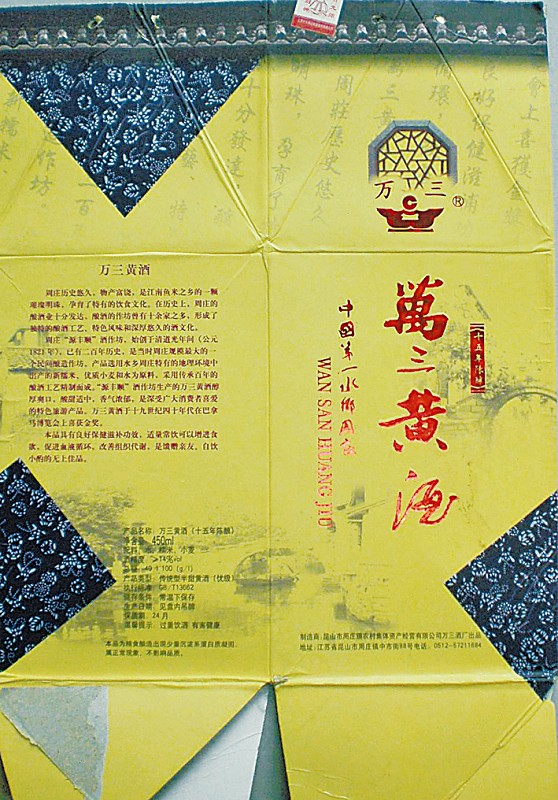 万三
®
万三黄酒
周庄历史悠久，物产富饶，是江南鱼米之乡的一颗
璀璨明珠，孕育了特有的饮食文化。在历史上，周庄的
酿酒业十分发达，酿酒的作坊曾有十余家之多，形成了
独特的酿酒工艺、特色风味和深厚悠久的酒文化。
周庄“源丰顺”酒作坊，始创于清道光年间（公元
1823 年），已有二百年历史，是当时周庄规模最大的一
个民间酿造作坊。产品选用水乡周庄特有的地理环境中
出产的新糯米、优质小麦和水为原料，采用传承百年的
酿酒工艺精制而成。“源丰顺”酒作坊生产的万三黄酒醇
厚爽口，酸甜适中，香气浓郁，是深受广大消费者喜爱
的特色旅游产品。万三黄酒于十九世纪四十年代在巴拿
马博览会上喜获金奖。
本品具有良好保健滋补功效，适量常饮可以增进食
欲，促进血液循环，改善组织代谢，是馈赠亲友、自饮
小酌的无上佳品。
萬三黄酒
十五年陈酿
中國第一水鄉周庄
WAN SAN HUANG JIU
产品名称：万三黄酒（十五年陈酿）
净含量：450ml
配料：水、糯米、小麦
酒精度：≥14%vol
产品类型：传统型半甜黄酒（优级）
执行标准：GB/T13662
贮存条件：常温下保存
生产日期：见盒内吊牌
保质期：24 月
温馨提示：过量饮酒 有害健康
本品为粮食酿造出现少量沉淀系蛋白质凝固，
属正常现象，不影响品质。
制造商：昆山市周庄镇农村集体资产经营有限公司万三酒厂出品
地址：江苏省昆山市周庄镇中市街88号电话：0512-57211684